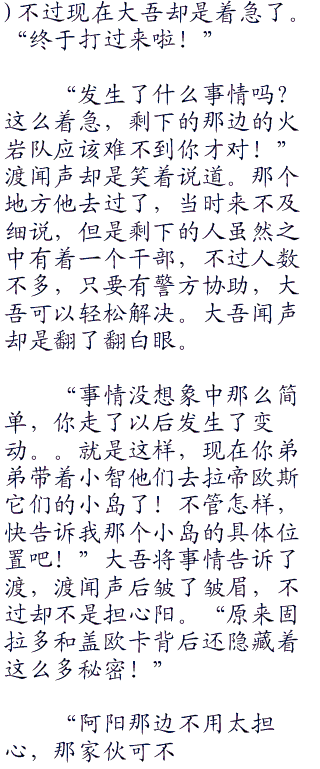 )不过现在大吾却是着急了。
“终于打过来啦！”
“发生了什么事情吗？
这么着急，剩下的那边的火
岩队应该难不到你才对！”
渡闻声却是笑着说道。那个
地方他去过了，当时来不及
细说，但是剩下的人虽然之
中有着一个干部，不过人数
不多，只要有警方协助，大
吾可以轻松解决。大吾闻声
却是翻了翻白眼。
“事情没想象中那么简
单，你走了以后发生了变
动。。就是这样，现在你弟
弟带着小智他们去拉帝欧斯
它们的小岛了！不管怎样，
快告诉我那个小岛的具体位
置吧！”大吾将事情告诉了
渡，渡闻声后皱了皱眉，不
过却不是担心阳。“原来固
拉多和盖欧卡背后还隐藏着
这么多秘密！”
“阿阳那边不用太担
心，那家伙可不